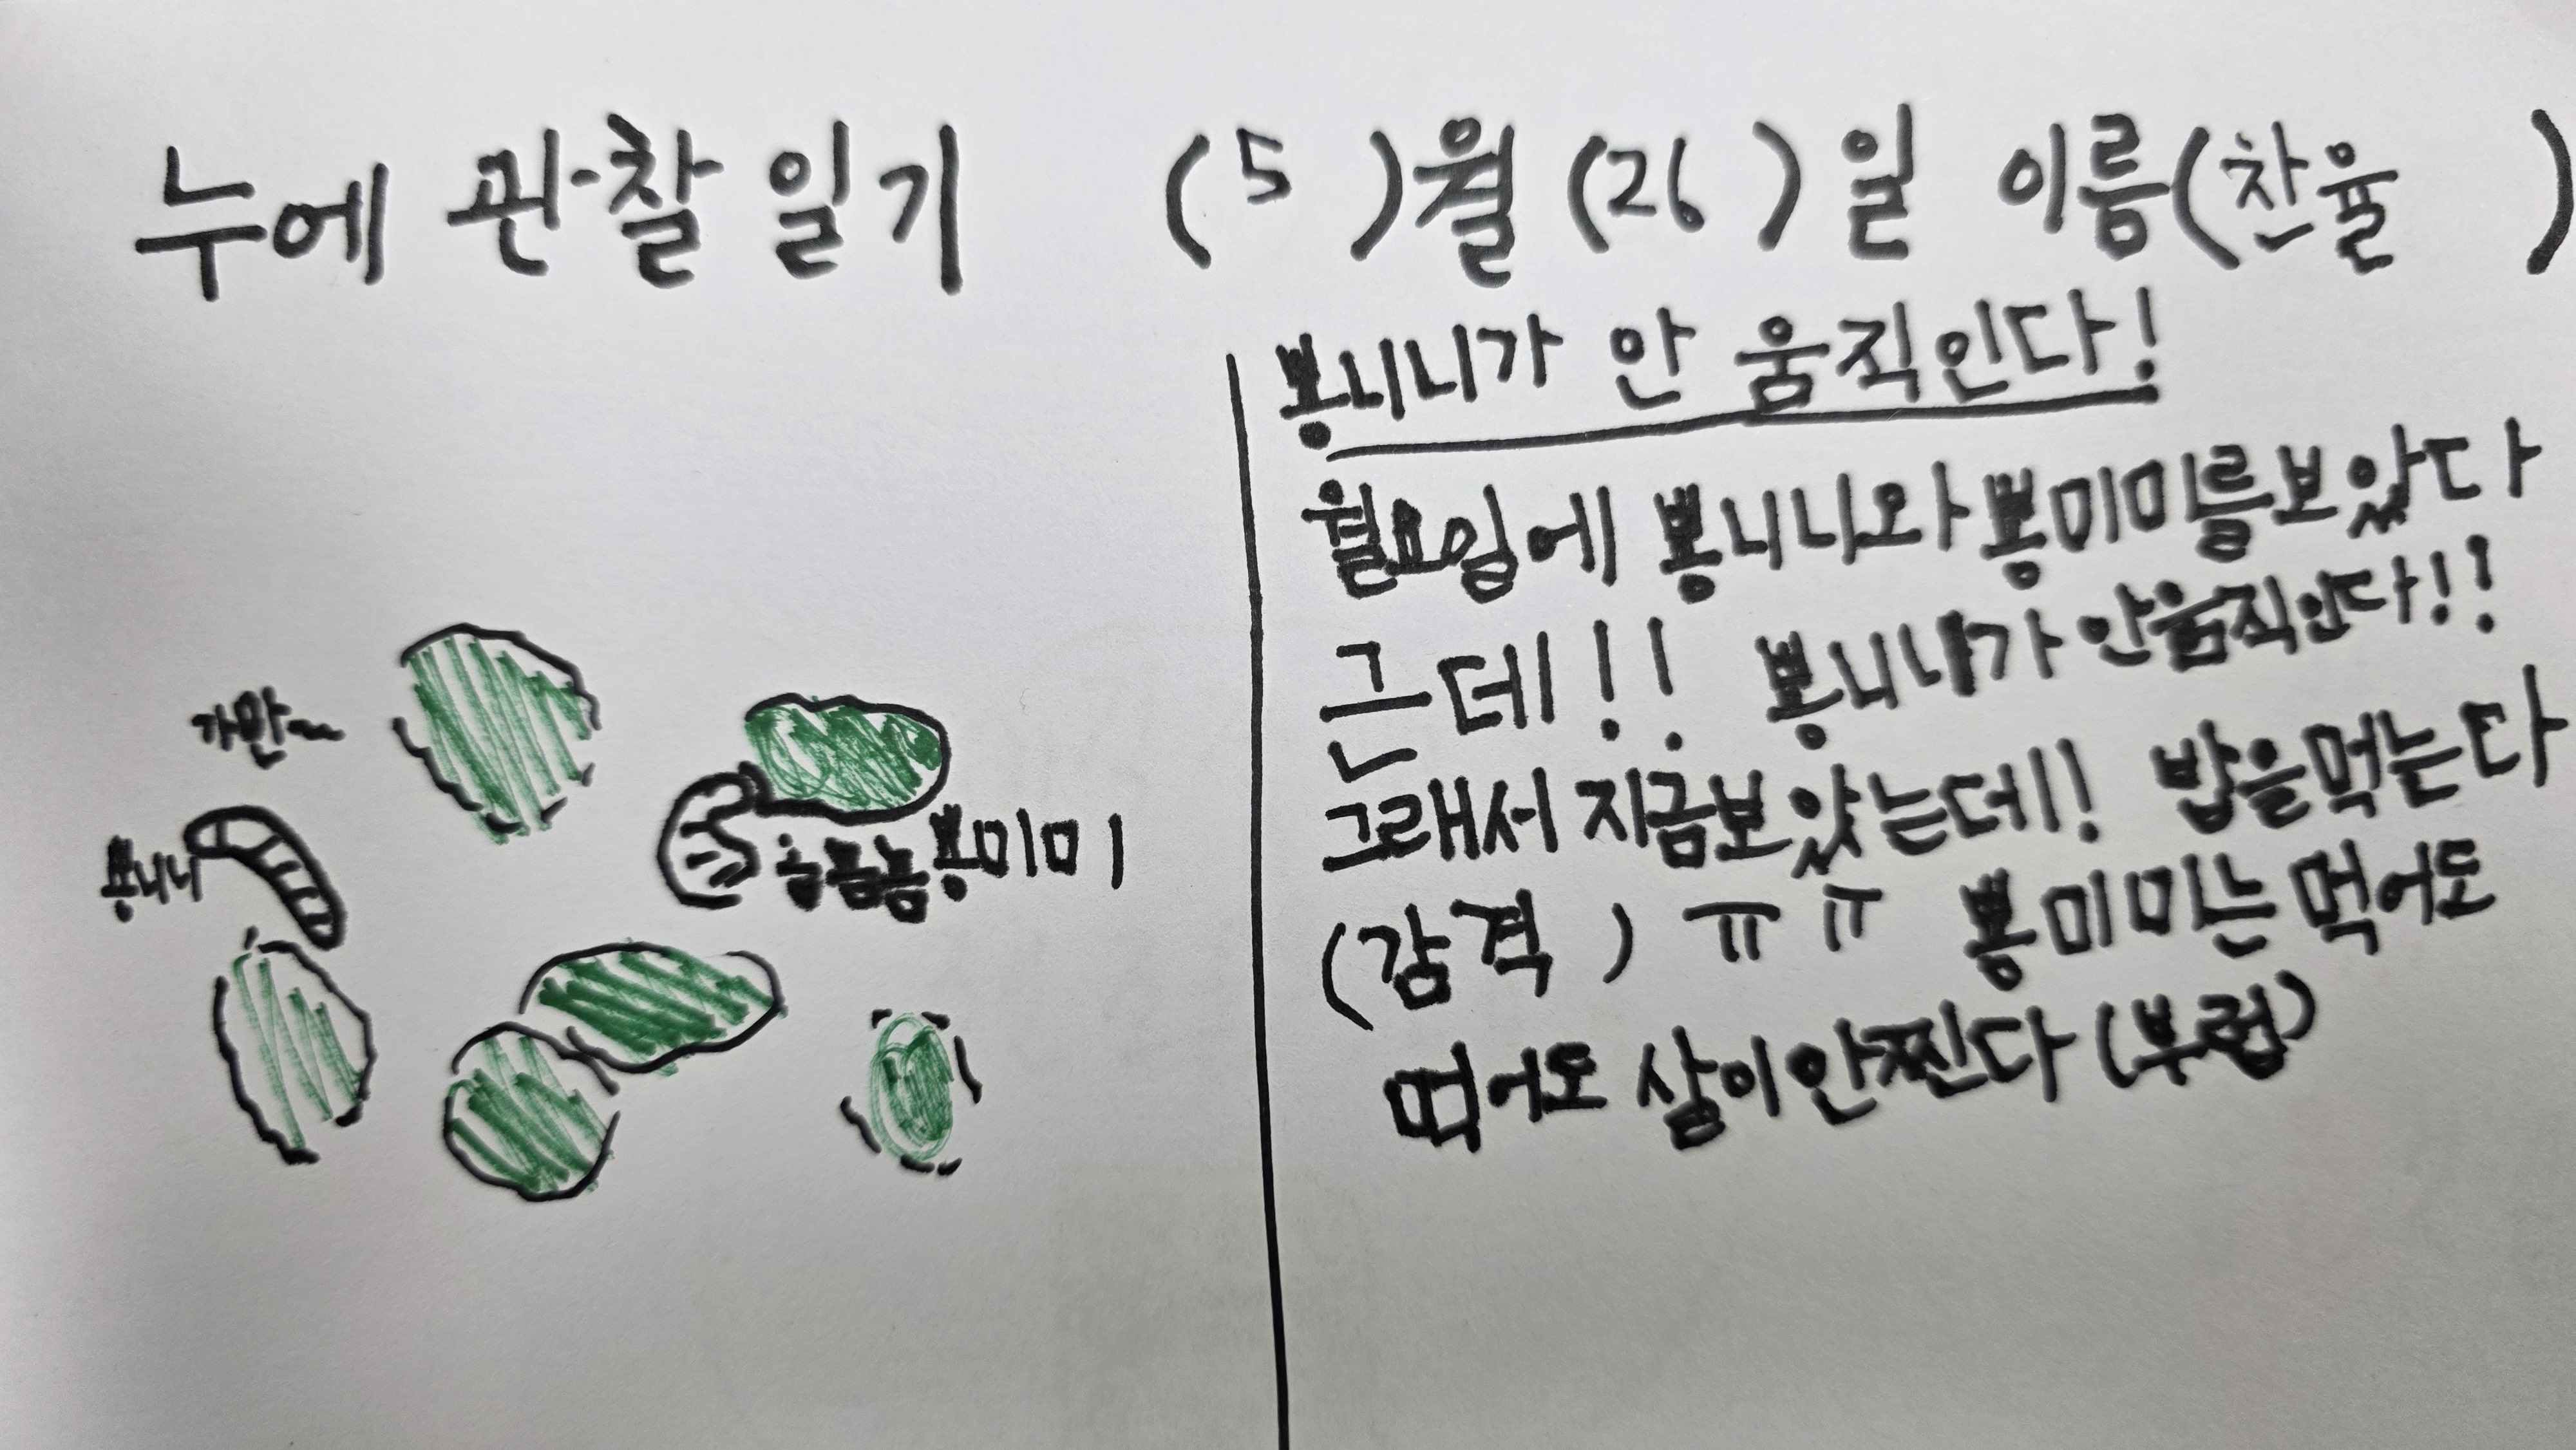 누에 관찰 일기 (5)월 (26)일 이름(찬율)
뽕니니가 안 움직인다!
월요일에 뽕니니와 뽕미미를보았다
근데!! 뽕니니가 안움직인다!!
그래서 지금보았는데! 밥을먹는다
(감격) ㅠㅠ 뽕미미는 먹어도
먹어도 살이안찐다 (부럽)
가만~
뽕니니
뽕미미